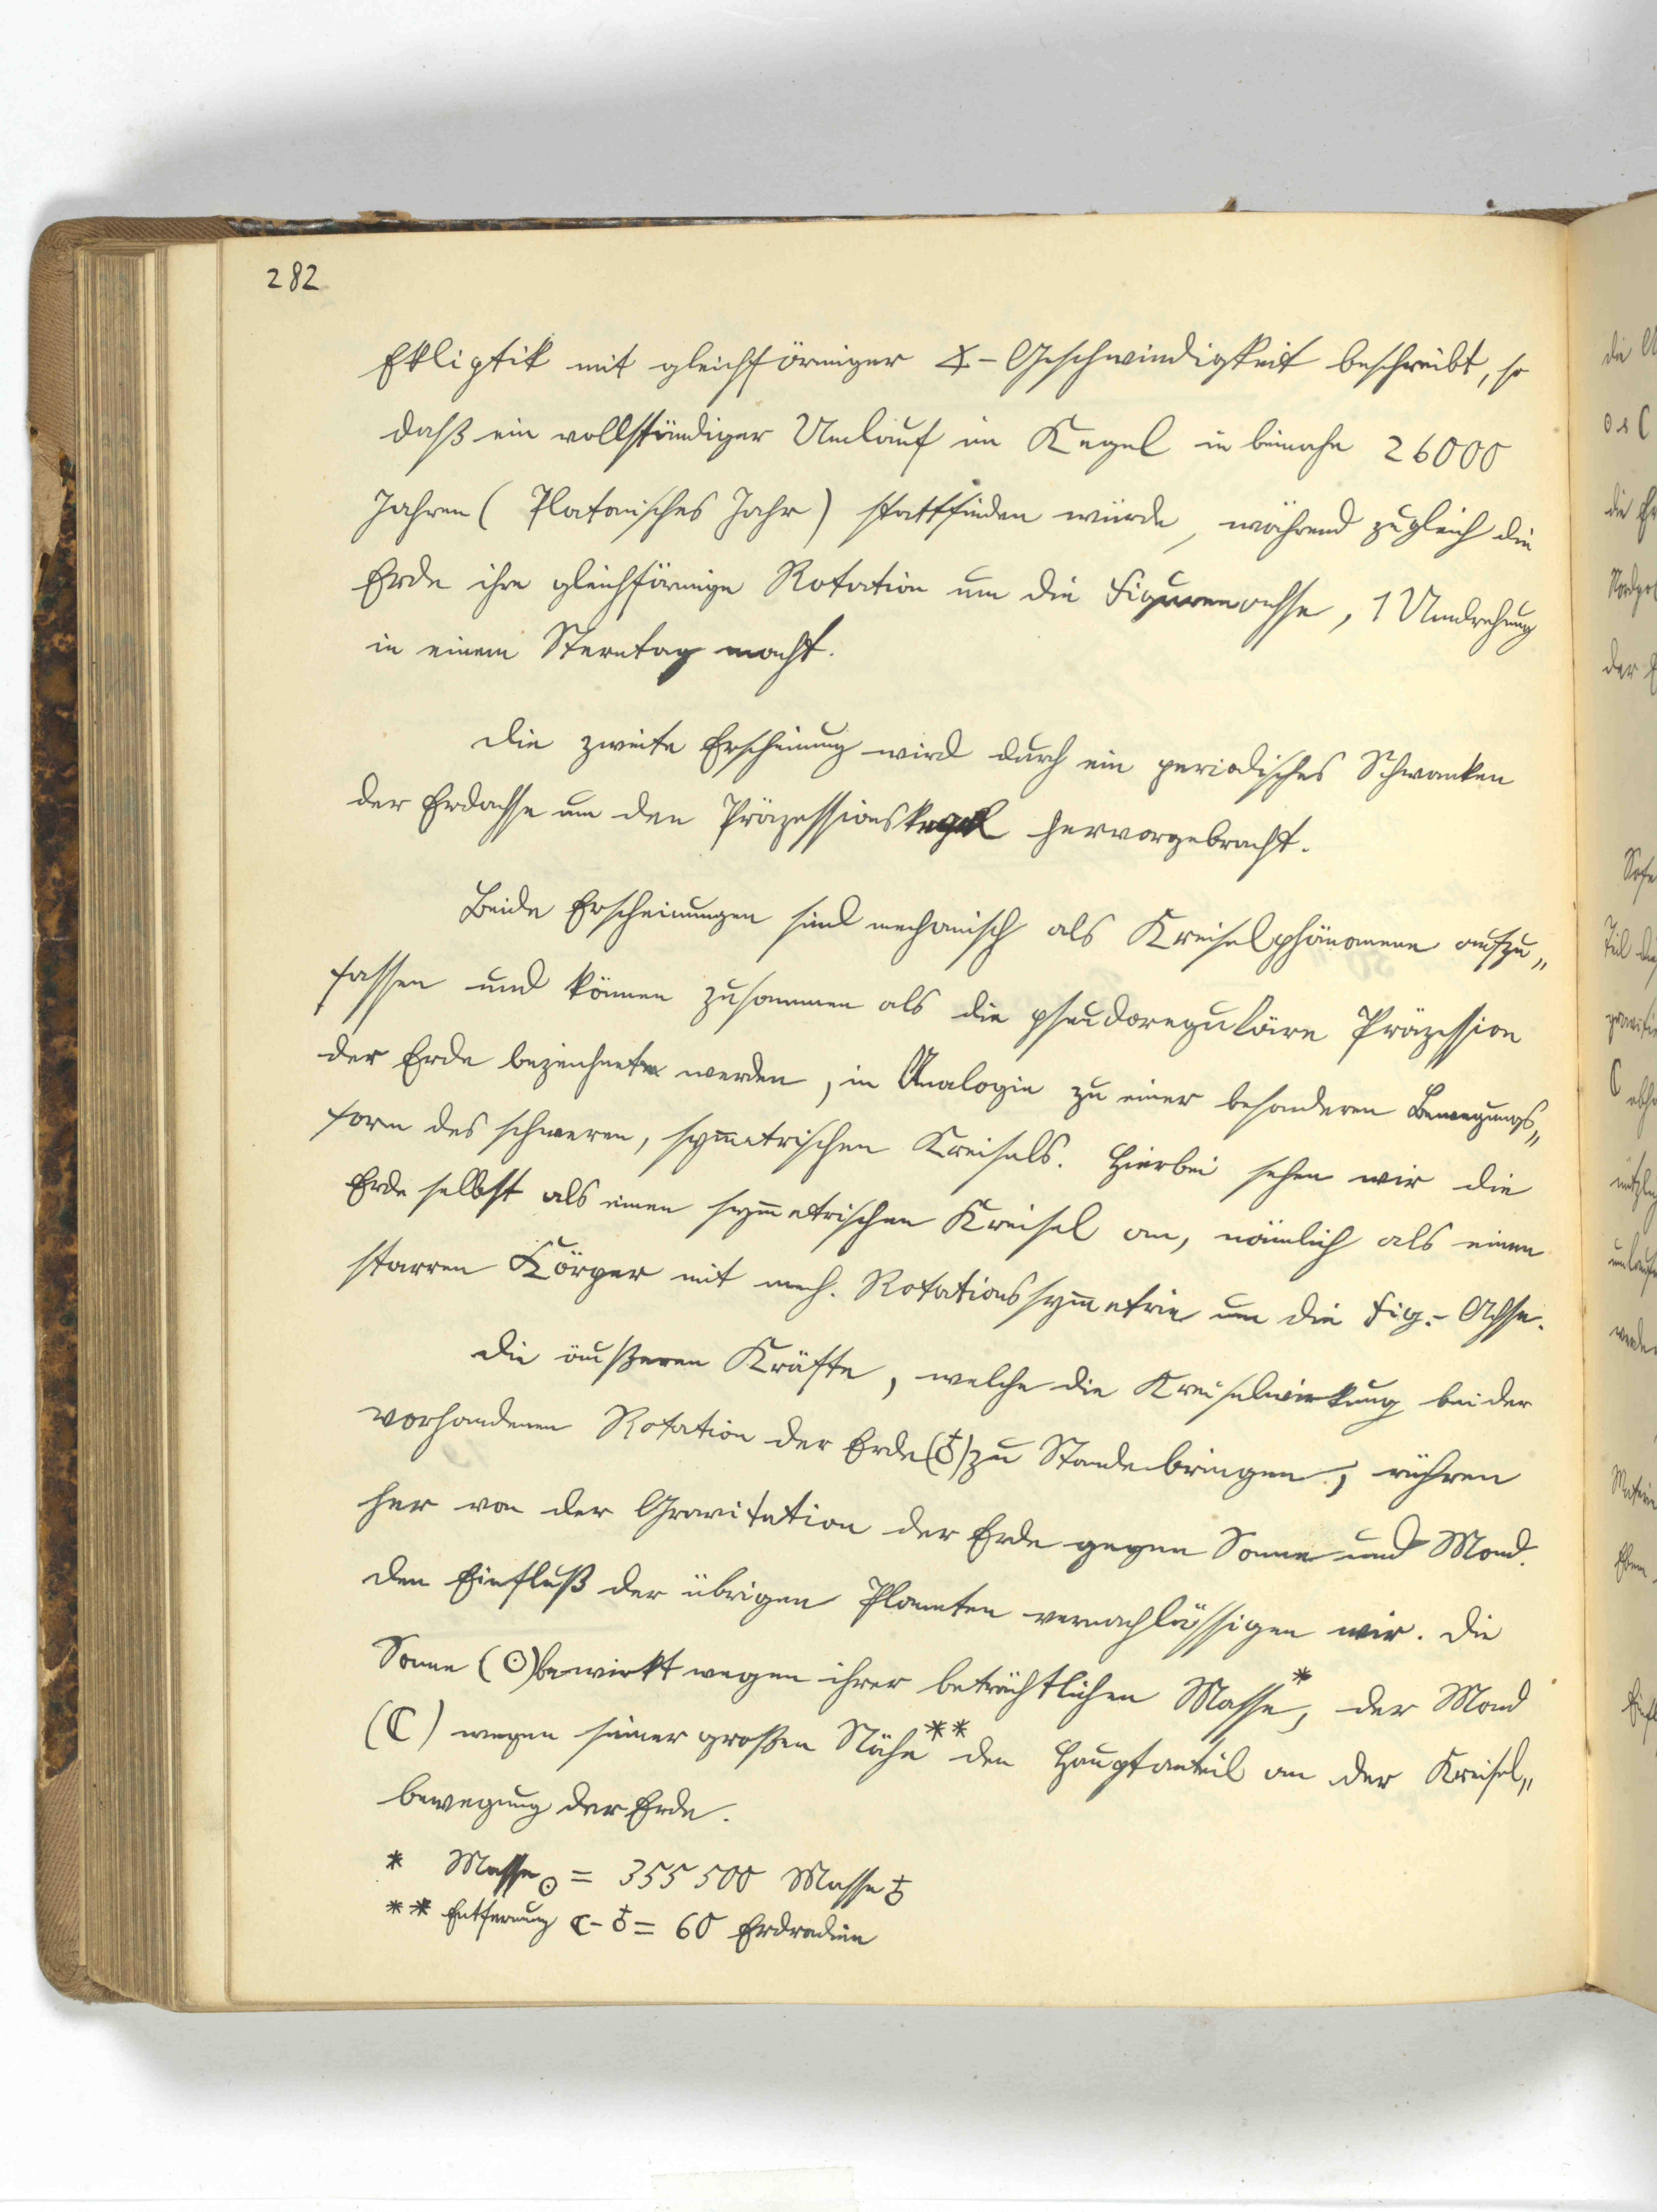 282
Ekliptik mit gleichförmiger ∢-Geschwindigkeit beschreibt, so
daß ein vollständiger Umlauf im Kegel in beinahe 26000
Jahren (Platonisches Jahr) stattfinden würde, während zugleich die
Erde ihre gleichförmige Rotation um die Figurenachse, 1 Umdrehung
in einem Sterntag macht.
Die zweite Erscheinung wird durch ein periodisches Schwanken
der Erdachse um den Präzessionskegel hervorgebracht.
Beide Erscheinungen sind mechanisch als Kreiselphänomene aufzu„
fassen und können zusammen als die pseudoreguläre Präzession
der Erde bezeichnet werden, in Analogie zu einer besonderen Bewegungs„
form des schweren, sym̅etrischen Kreisels. Hierbei sehen wir die
Erde selbst als einen sym̅etrischen Kreisel an, nämlich als einen
starren Körper mit mech. Rotationssym̅etrie um die Fig.-Achse.
Die äußeren Kräfte, welche die Kreiselwirkung bei der
vorhandenen Rotation der Erde (♁) zu Stande bringen, rühren
her von der Gravitation der Erde gegen Sonne und Mond.
Den Einfluß der übrigen Planeten vernachlässigen wir. Die
Sonne (⊙) bewirkt wegen ihrer beträchtlichen Masse*, der Mond
(☾) wegen seiner großen Nähe** den Hauptanteil an der Kreisel„
bewegung der Erde.
* Masse ⊙ = 355 500 Masse ♁
** Entfernung ☾-♁ = 60 Erdradien
die
⊙ s ☾
die
Nordpol
der